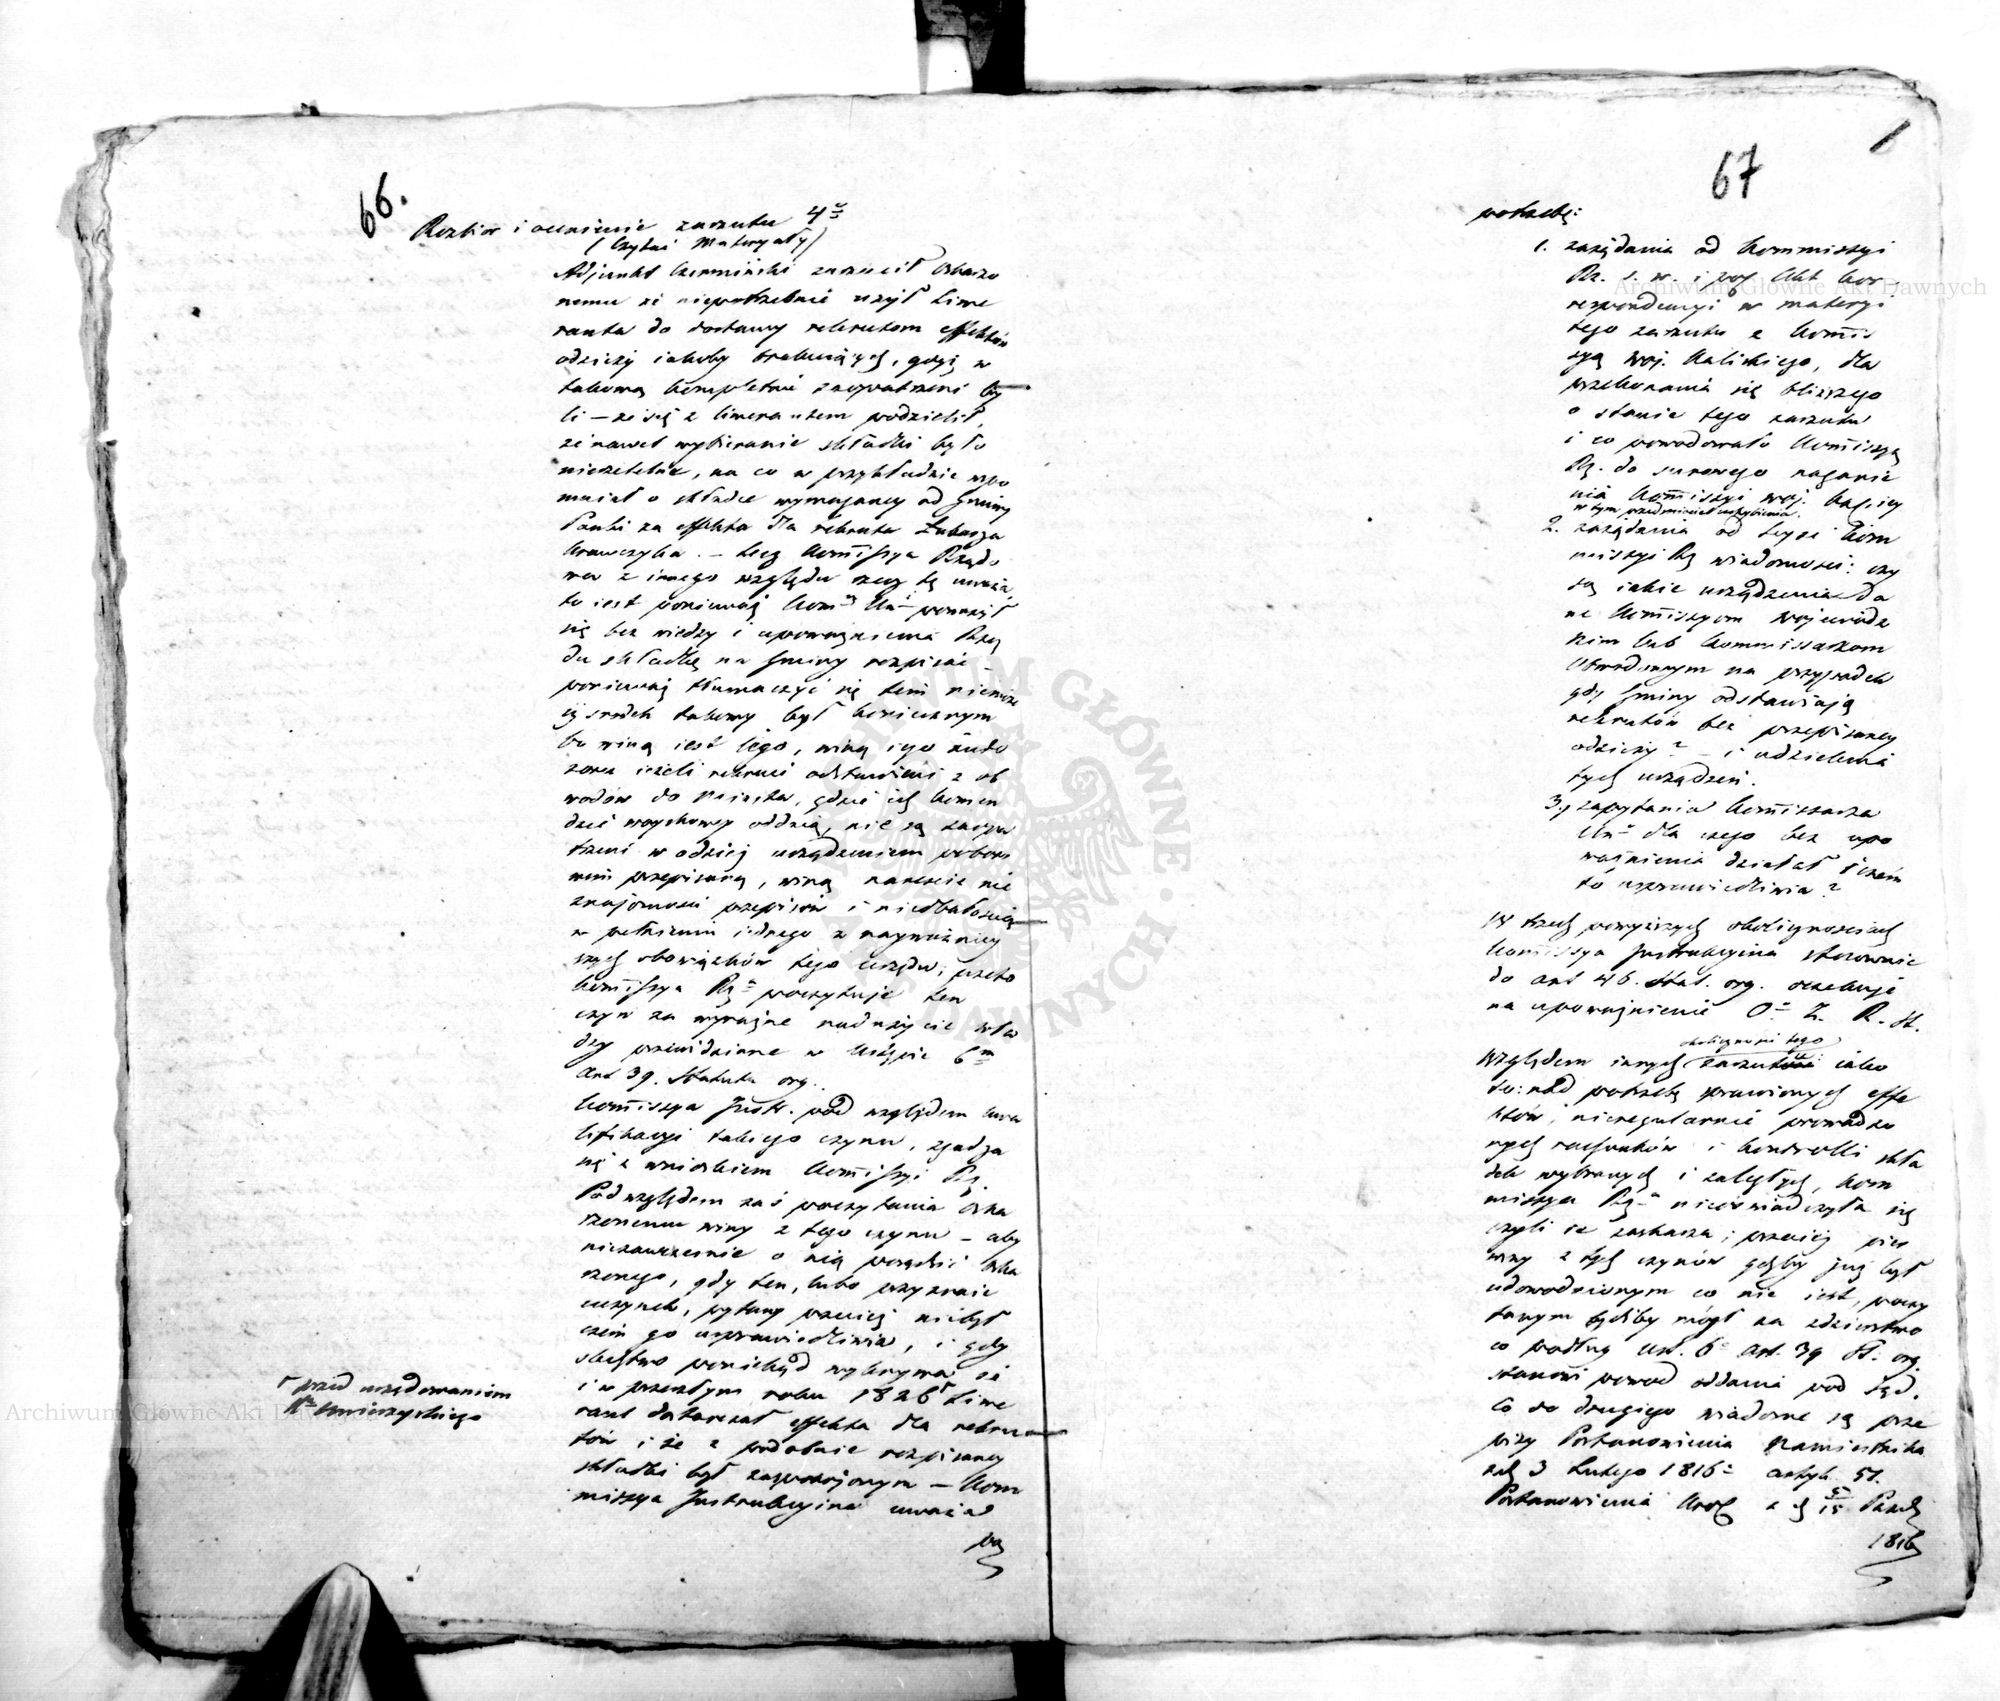 66.
Rozbiór i ocenienie zarzutu 4º
(Czytać Materyały)
Adjunkt Czermiński zarzucił oskarżo
nemu że niepotrzebnie użył Liwe
ranta do dostawy rekrutom effektów
odzieży iakoby brakujących, gdyż w
takową kompletnie zaopatrzeni by
li – że się z liwerantem podzielił,
że nawet wybieranie składki było
nierzetelne, na co w przykładzie wspo
mniał o składce wymaganey od Gminy
Panki za effekta dla rekruta Łukasza
Krawczyka. – Lecz Kommissya Rządo
wa z innego względu rzecz tę uważa,
to iest ponieważ Kom. Um. poważył
się bez wiedzy i upoważnienia Rzą
du składkę na Gminy rozpisać –
ponieważ tłumaczyć się tem niemoże
iż środek takowy był koniecznym
bo winą iest iego, winą iego nado
zoru ieżeli rekruci odstawieni z ob
wodów do miasta, gdzie ich komen
dzie woyskowey oddaią, nie są zaopa
trzeni w odzież urządzeniem poboro
wem przepisaną, winą nareszcie nie
znajomości przepisów i niedbałością
w pełnieniu iednego z nayważniey
szych obowiązków tego urzędu; przeto
Kommissya Rzą. poczytuje ten
czyn za wyraźne nadużycie wła
dzy przewidziane w Ustępie 6m
art 39. Statutu org.
Kommissya Instr. pod względem kwa
lifikacyi takiego czynu, zgadza
się z wnioskiem Kommissyi Rz.
Pod względem zaś poczytania oska
rżonemu winy z tego czynu – aby
niezawcześnie o nią posądzić oska
rżonego, gdy ten, lubo przyznaie
uczynek, pytany przecież niebył
czem go usprawiedliwia, i gdy
śledztwo poniekąd wykrywa że
i w przeszłym roku 1826 Liwe
rant dostarczał effekta dla rekru
tów i że z podobnie rozpisaney
składki był zaspokojonym – Kom
missya Instrukcyina uważa
po
przed urzędowaniem
67
potrzebę:
1. zażądania od Kommissyi
Rz. S. W. i pol. Akt kor
respondencyi w materyi
tego zarzutu z Kommis
syą woj. Kaliskiego, dla
przekonania się bliższego
o stanie tego zarzutu
i co powodowało Kommissyą
Rz. do surowego naganie
nia Kommissyi woj. Kal. iey
w tym przedmiocie uchybienia.
2. zażądania od teyże Kom
missyi Rz wiadomości: czy
są iakie urządzenia da
ne Kommissyom wojewódz
kim lub kommissarzom
Obwodowym na przypadek
gdy Gminy odstawiają
rekrutów bez przepisaney
odzieży? – i udzielenia
tych urządzeń.
3., zapytania Kommissarza
Um. dla czego bez upo
ważnienia działał i czem
to usprawiedliwia?
W trzech powyższych okolicznościach
Kommissya Instrukcyina stosownie
do art 46. Stat. org. oczekuje
na upoważnienie O. Z. R. St.
okoliczności tego
Względem innych zarzutu iako
to: nad potrzebę sprawionych effe
któw, nieregularnie prowadzo
nych rachunków i kontrolli skła
dek wybranych i zaległych, Kom
missya Rz. nieoświadczyła się
czyli ie zaskarża; przecież pier
wszy z tych czynów gdyby już był
udowodnionym co nie iest, poczy
tanym byćby mógł za zdzierstwo
co podług Us. 6. art. 39 St. org.
stanowi powod oddania pod Sąd.
Co do drugiego wiadome są prze
pisy Postanowienia Namiestnika
z d. 3 Lutego 1816 artyk. 51.
Postanowienia Król. z d. 5/15 Paźd.
1816